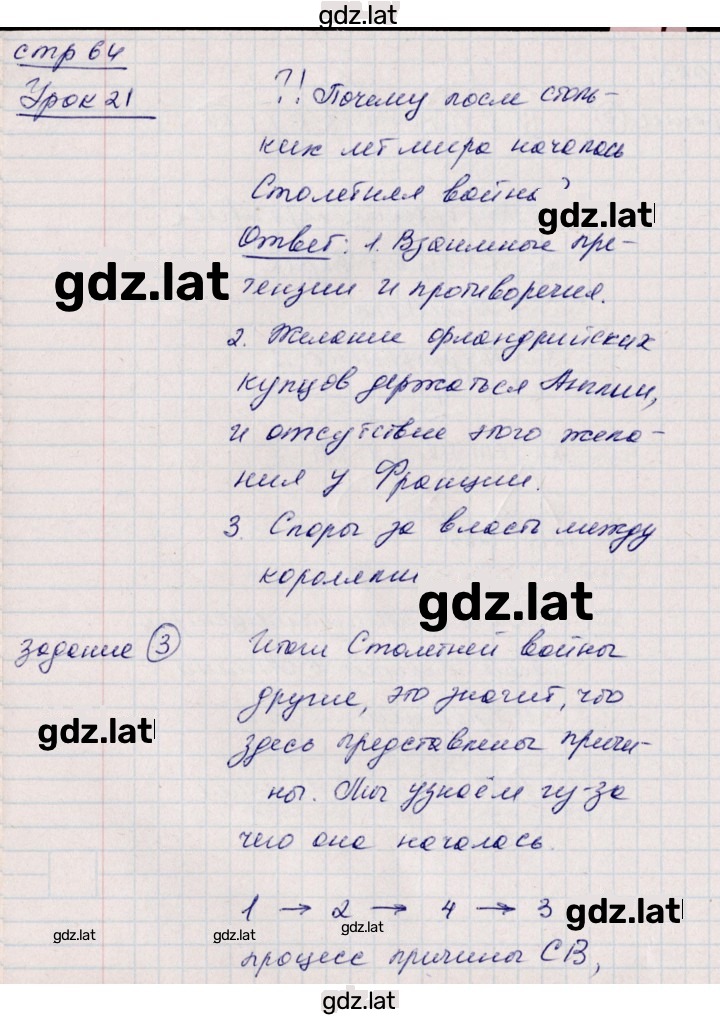 gdz.lat
стр 64
Урок 21
?! Почему после столь-
ких лет мира началась
Столетняя война?
gdz.lat
Ответ: 1. Взаимные пре-
gdz.lat
тензии и противоречия.
2. Желание фландрийских
купцов держаться Англии,
и отсутствие этого жела-
ния у Франции.
3. Споры за власть между
королями
gdz.lat
задание 3
Итоги Столетней войны
другие, это значит, что
gdz.lat
здесь представлены причи-
ны. Мы узнаём из-за
чего она началась.
1 → 2 → 4 → 3
gdz.lat
gdz.lat
gdz.lat
gdz.lat
процесс причины СВ,
gdz.lat